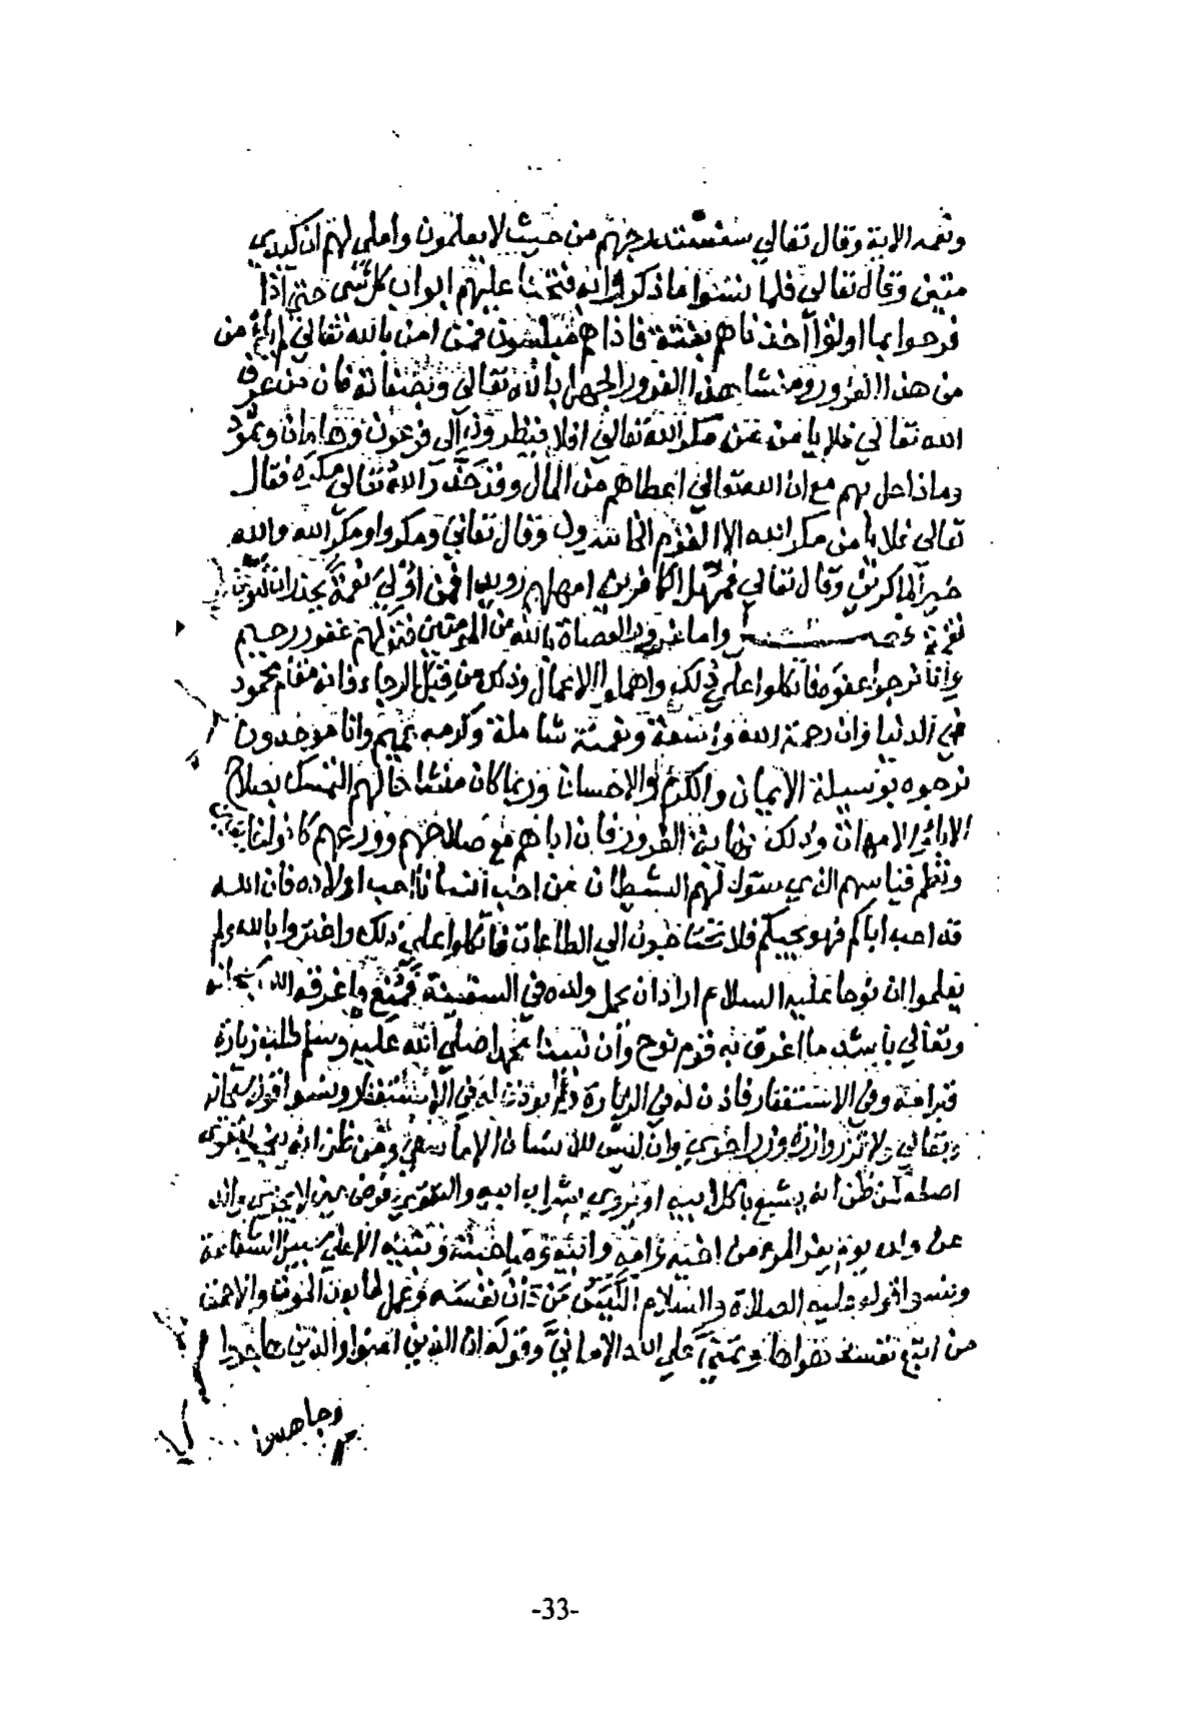 ونعمه الاية وقال تعالي سنستدرجهم من حيث لا يعلمون واملي لهم ان كيدي
متين وقال تعالى فلما نسوا ما ذكروا به فتحنا عليهم ابواب كل شى حتى اذا
فرحوا بما اوتوا اخذناهم بغتة فاذا هم مبلسون فمن امن بالله تعالى من
من هذا الغرور ومنشا هذا الغرور الجهل بالله تعالى وبصفاته فان من عرف
الله تعالي فلا يامن من مكر الله تعالى افلا ينظرون الى فرعون وهامان وثمود
وماذا حل بهم مع ان الله تعالى اعطاهم من المال وقد حذر الله تعالى مكره فقال
تعالى فلا يامن مكر الله الا القوم الخاسرون وقال تعالى ومكروا ومكر الله والله
خير الماكرين وقال تعالي فمهل الكافرين امهلهم رويدا فمن اولي نعمة يحذر ان تكون
واما غرور العصاة بالله من المومنين فقولهم غفور رحيم
وانا نرجوا عفوه فاتكلوا على ذلك واهملوا الاعمال وذلك من قبل الرجاء فانه مقام محمود
في الدنيا وان رحمة الله واسعة ونعمته شاملة وكرمه عميم وانا موحدون
نرجوه بوسيلة الايمان والكرم والاحسان وربما كان منشا حالهم التمسك بصلاح
الاباء والامهات وذلك نهاية الغرور فان اباهم مع صلاحهم وورعهم كانوا
ونظم قياسهم الذي سول لهم الشيطان من احب انسانا احب اولاده فان الله
قد احب اباكم فهو يحبكم فلا تحتاجون الى الطاعات فاتكلوا على ذلك واغتروا بالله ولم
يعلموا ان نوحا عليه السلام اراد ان يحمل ولده في السفينة فمنع واغرقه الله سبحانه
وتعالي باشد ما اغرق به قوم نوح وان نبينا محمدا صلى الله عليه وسلم طلب زيارة
قبر امه وفي الاستغفار فاذن له في الزيارة ولم يوذن له في الاستغفار ونسوا قوله سبحانه
وتعالي ولا تزر وازرة وزر اخرى وان ليس للانسان الا ما سعى ومن ظن انه ينجو بتقوى
اصله كمن ظن انه يشبع باكل ابيه او يروى بشراب ابيه والتقوى فرض عين لا يجزى والد
عن ولده يوم يفر المرء من اخيه وامه وابيه وصاحبته وبنيه الا على سبيل الشفاعة
ونسوا قوله عليه الصلاة والسلام الكيس من دان نفسه وعمل لما بعد الموت والاحمق
من اتبع نفسه هواها وتمنى على الله الاماني وقوله ان الذين امنوا والذين هاجروا
وجاهدوا
-33-